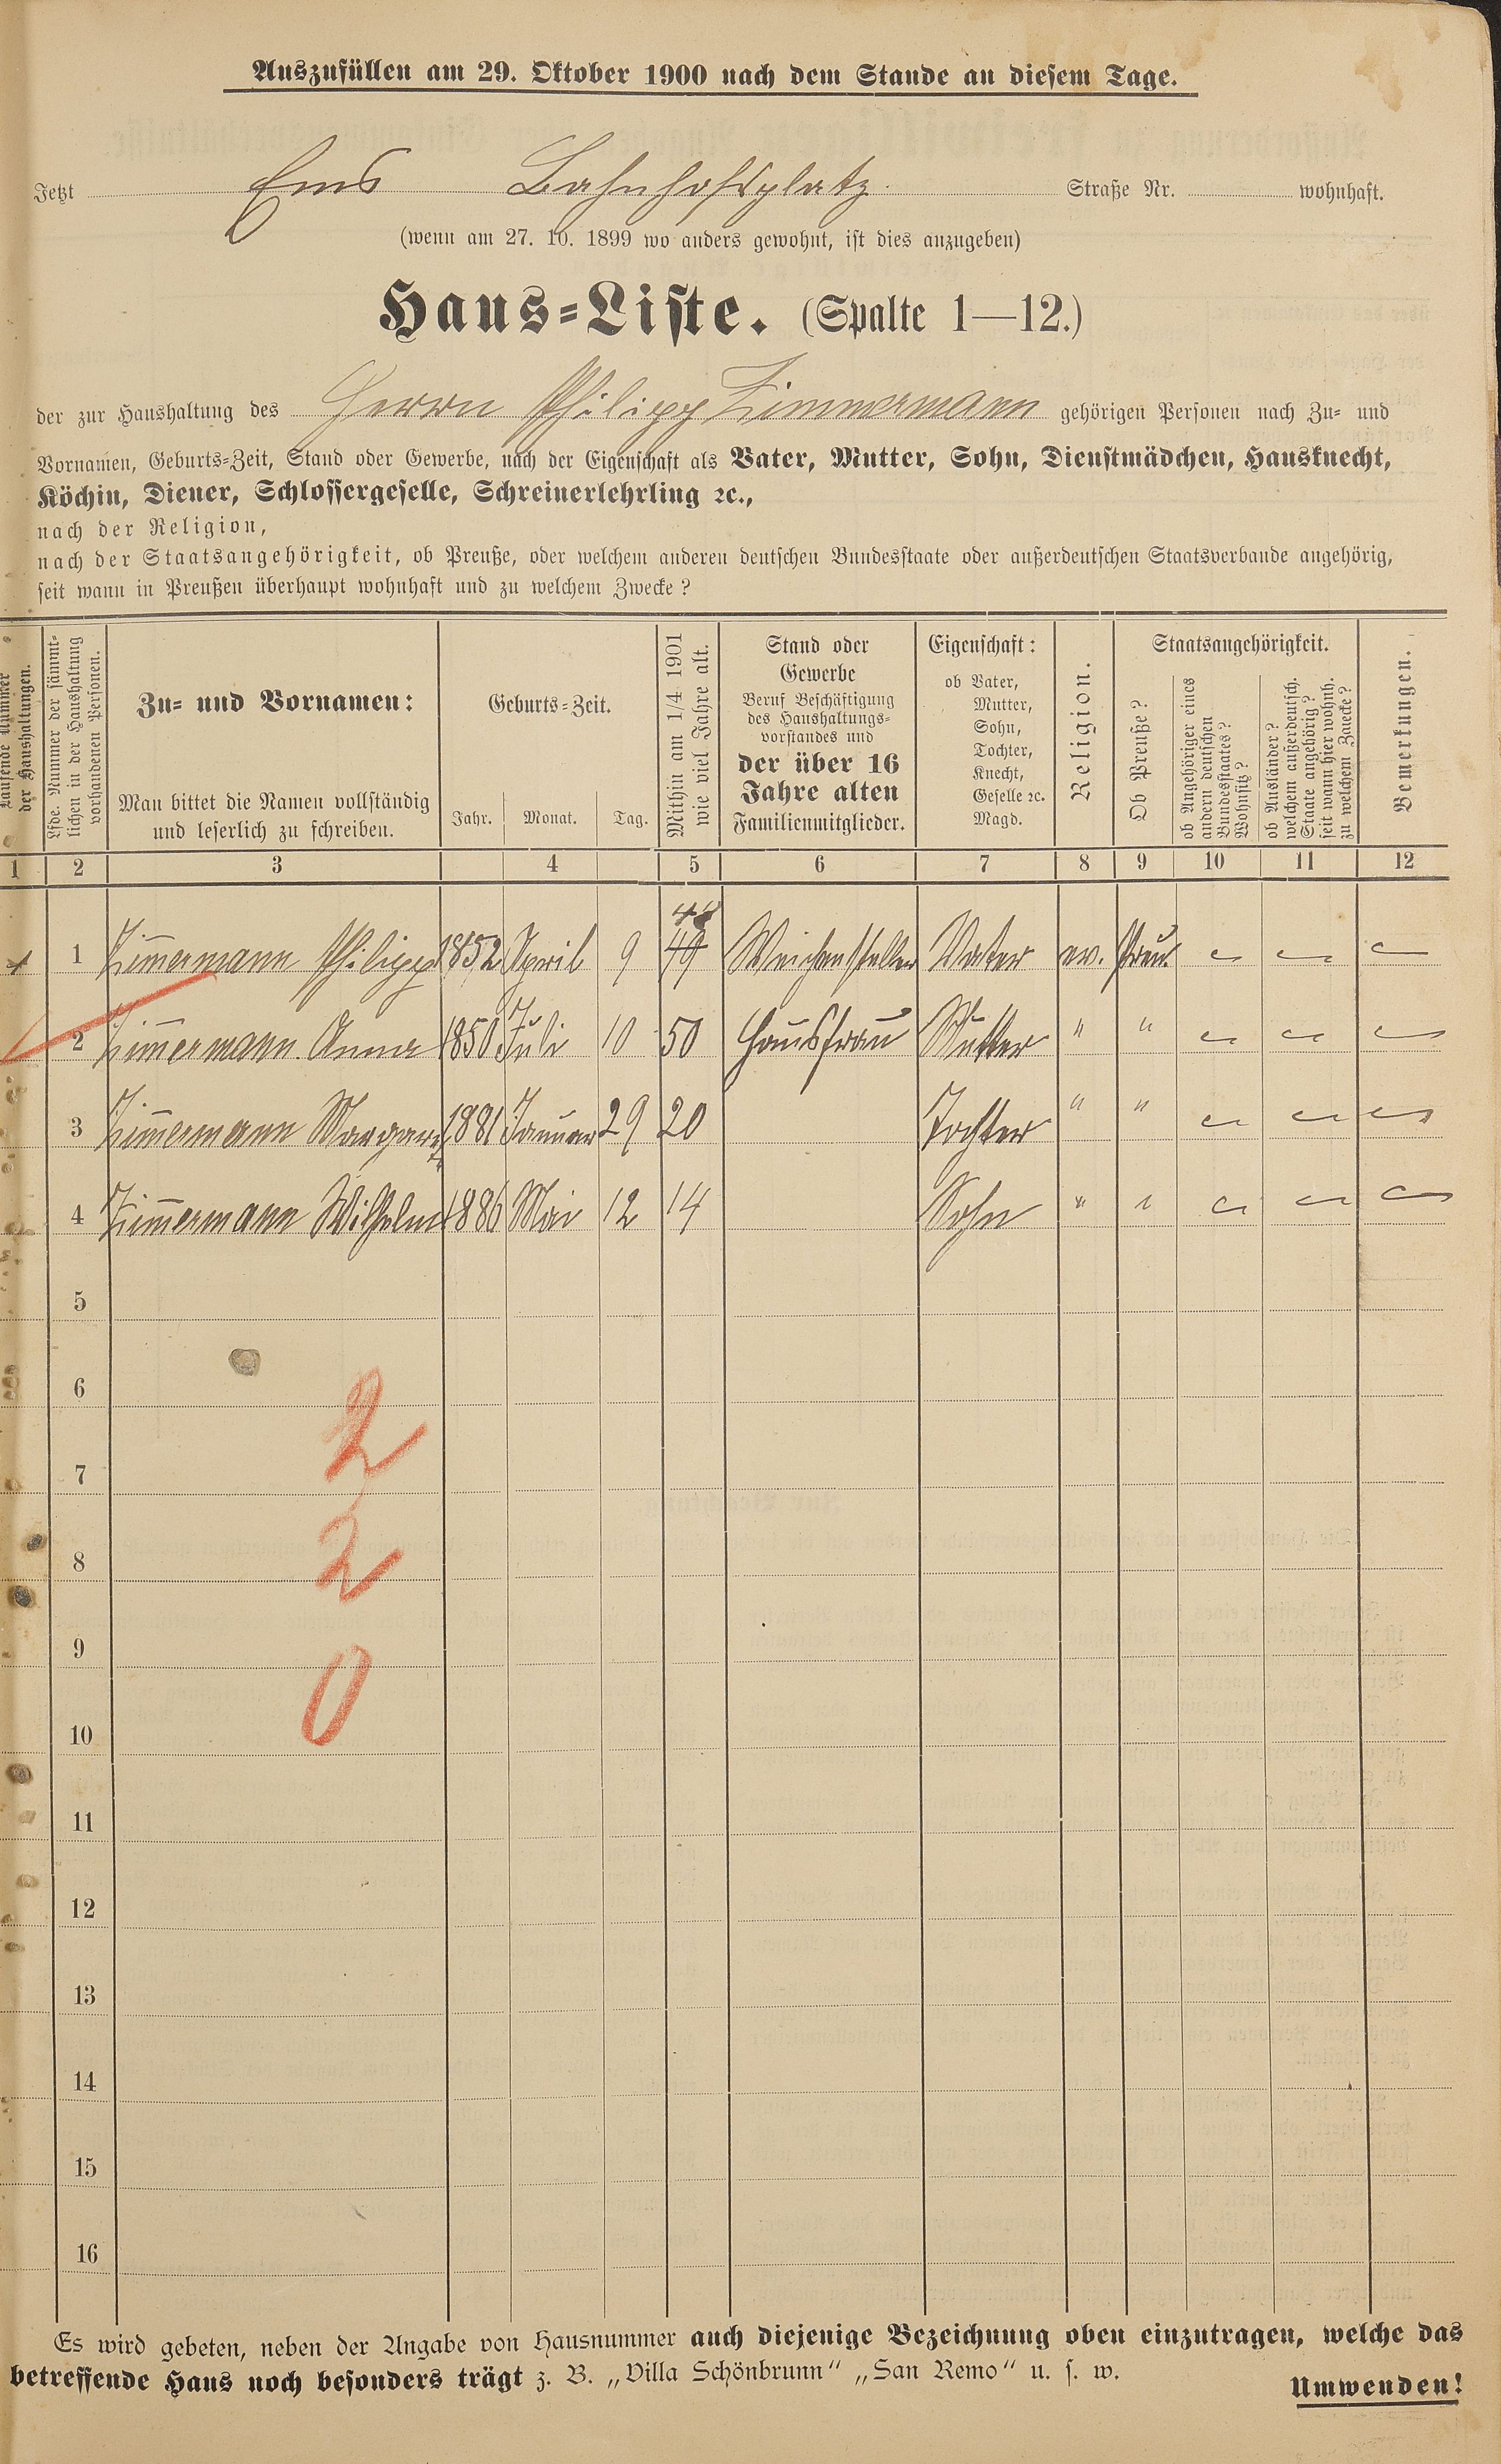 Auszufüllen am 29. Oktober 1900 nach dem Stande an diesem Tage.
Jetzt Ems Bahnhofsplatz. Straße Nr. wohnhaft.
(wenn am 27. 10. 1899 wo anders gewohnt, ist dies anzugeben)
Haus=Liste. (Spalte 1—12.)
der zur Haushaltung des Herrn Philipp Zimmermann gehörigen Personen nach Zu= und
Vornamen, Geburts=Zeit, Stand oder Gewerbe, nach der Eigenschaft als Vater, Mutter, Sohn, Dienstmädchen, Hausknecht,
Köchin, Diener, Schlossergeselle, Schreinerlehrling ꝛc.,
nach der Religion,
nach der Staatsangehörigkeit, ob Preuße, oder welchem anderen deutschen Bundesstaate oder außerdeutschen Staatsverbande angehörig,
seit wann in Preußen überhaupt wohnhaft und zu welchem Zwecke?
Laufende Nummer
der Haushaltungen.
Lfde. Nummer der sämmt=
lichen in der Haushaltung
vorhandenen Personen.
Zu= und Vornamen:
Man bittet die Namen vollständig
und leserlich zu schreiben.
Geburts=Zeit.
Jahr. Monat. Tag.
Mithin am 1/4 1901
wie viel Jahre alt.
Stand oder
Gewerbe
Beruf Beschäftigung
des Haushaltungs=
vorstandes und
der über 16
Jahre alten
Familienmitglieder.
Eigenschaft:
ob Vater,
Mutter,
Sohn,
Tochter,
Knecht,
Geselle ꝛc.
Magd.
Religion.
Staatsangehörigkeit.
Ob Preuße?
ob Angehöriger eines
andern deutschen
Bundesstaates?
Wohnsitz?
ob Ausländer?
welchem außerdeutsch.
Staate angehörig?
seit wann hier wohnh.
zu welchem Zwecke?
Bemerkungen.
1 2 3 4 5 6 7 8 9 10 11 12
48
1 Zimmermann Philipp 1852 April 9 49 Weichensteller Vater ev. Preuß.
2 Zimmermann Anna 1850 Juli 10 50 Hausfrau Mutter " "
3 Zimmermann Margaret 1881 Januar 29 20 Tochter " "
4 Zimmermann Wilhelm 1886 Mai 12 14 Sohn " "
5
6
2
7
2
8
9
0
10
11
12
13
14
15
16
Es wird gebeten, neben der Angabe von Hausnummer auch diejenige Bezeichnung oben einzutragen, welche das
betreffende Haus noch besonders trägt z. B. „Villa Schönbrunn“ „San Remo“ u. s. w.
Umwenden!